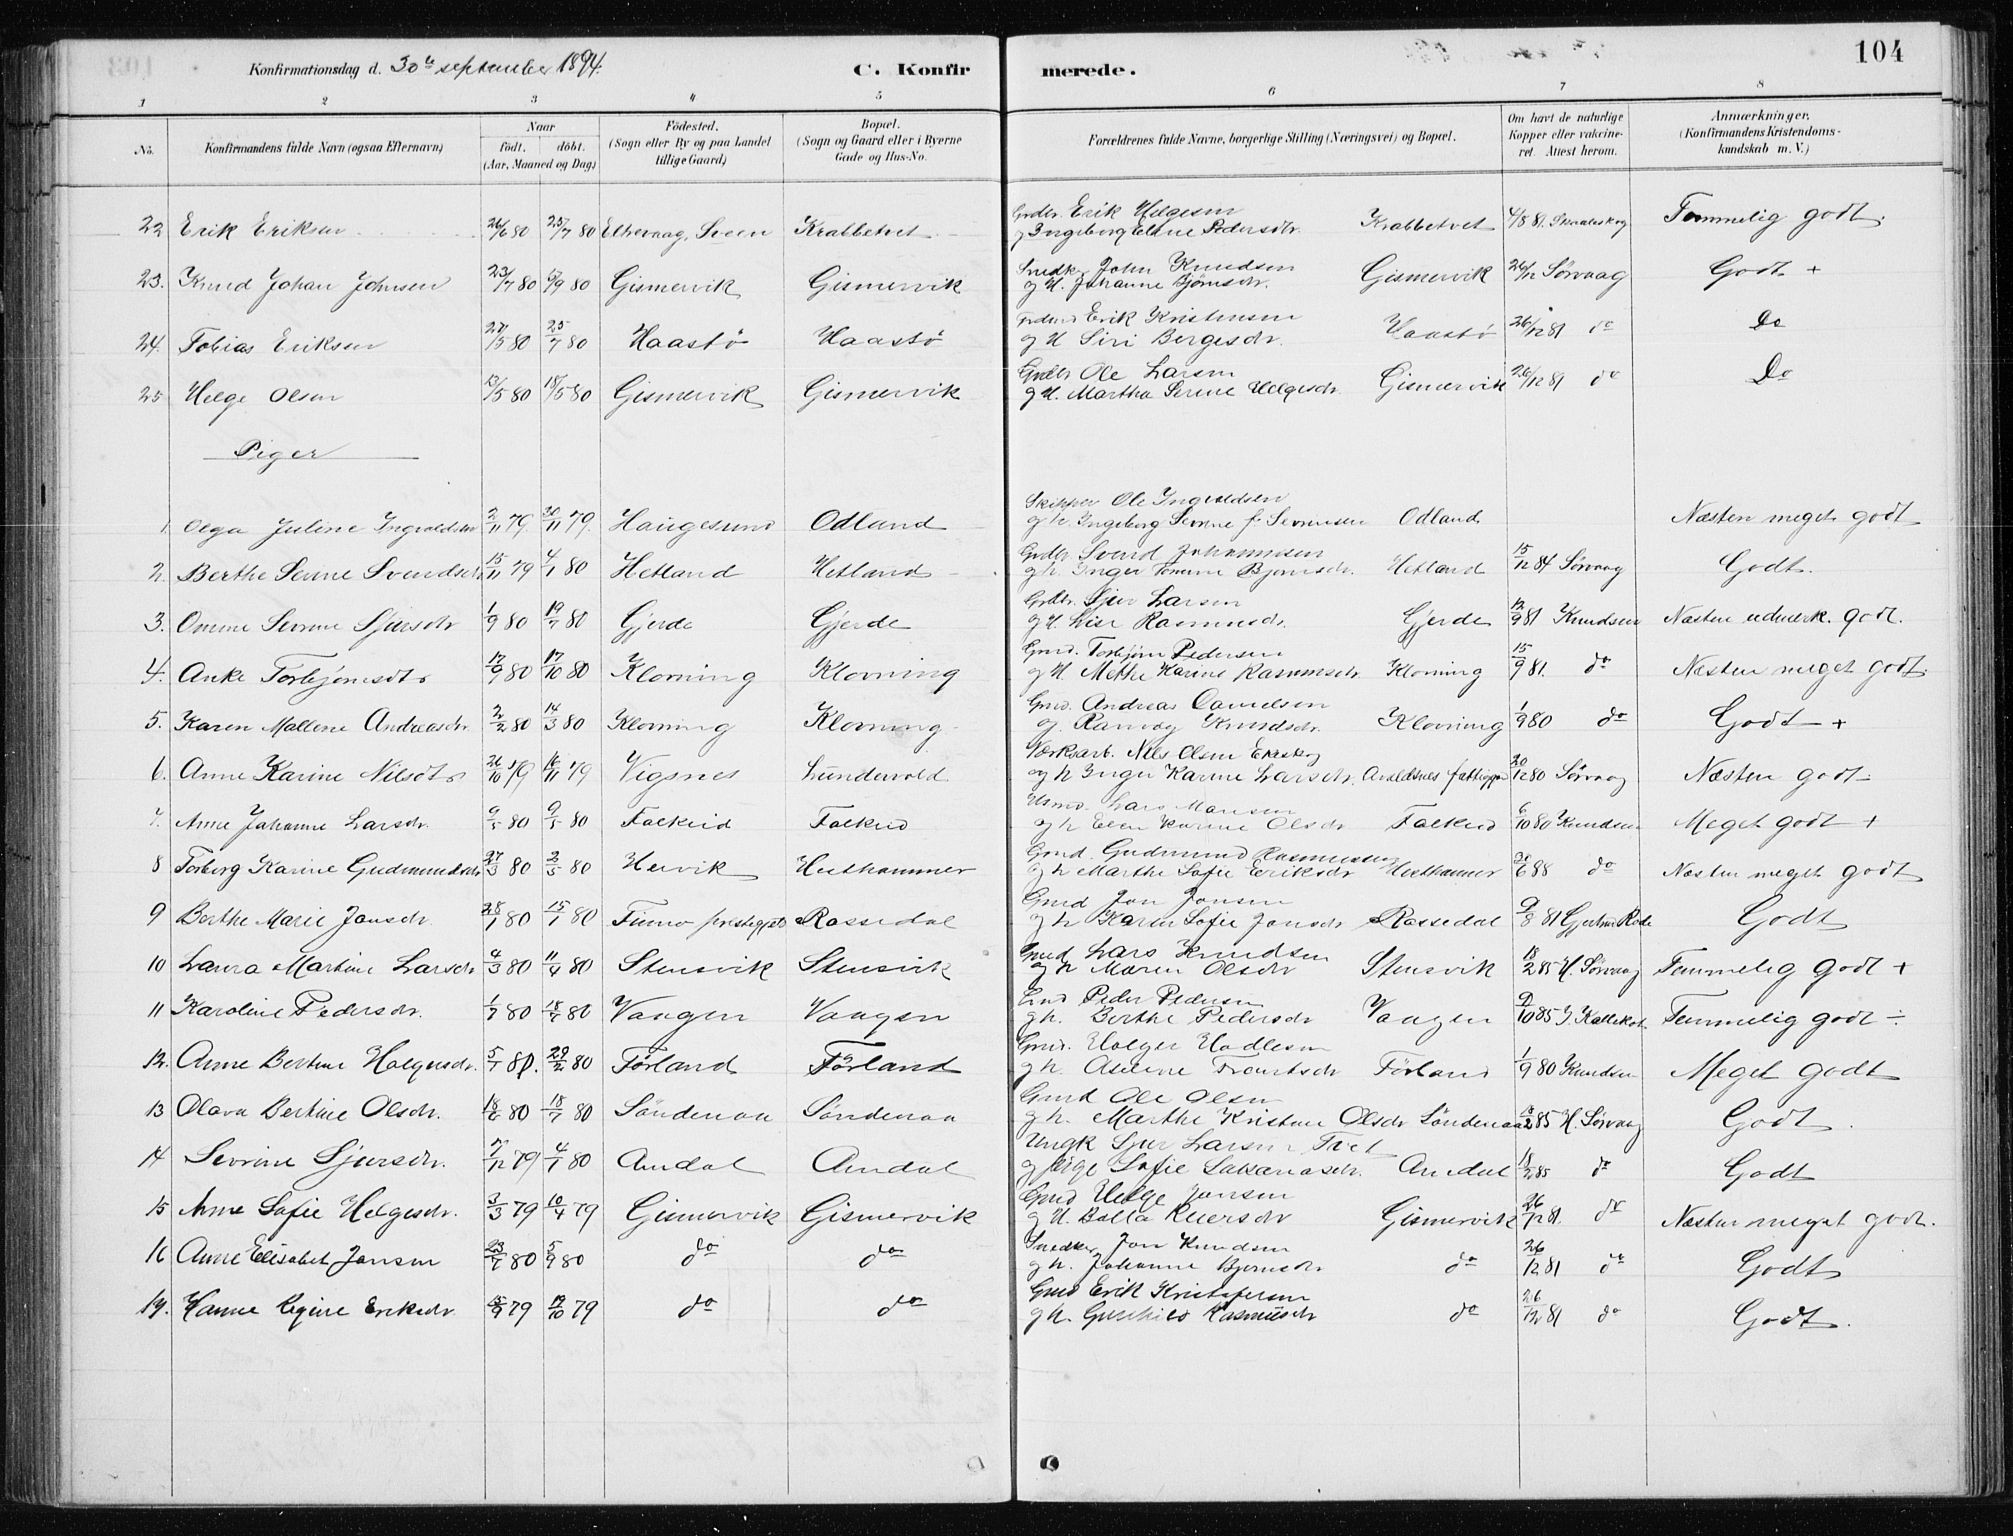 104
Konfirmationsdag d. 30te september 1894. C. Konfirmerede.
1 2 3 4 5 6 7 8
No. Konfirmandens fulde Navn (ogsaa Efternavn) Naar født. døbt. (Aar, Maaned og Dag) Fødested. (Sogn eller By og paa Landet tillige Gaard) Bopæl. (Sogn og Gaard eller i Byerne Gade og Hus-No. Forældrenes fulde Navne, borgerlige Stilling (Næringsvei) og Bopæl. Om havt de naturlige Kopper eller vakcineret. Attest herom. Anmærkninger. (Konfirmandens Kristendomskundskab m. V.)
22 Erik Eriksen 26/6 80 25/7 80 Sveen Krabbetvet Grdbr. Erik Helgesen og Ingeborg Eline Pedersdtr. Krabbetvet 4/8 81 Temmelig godt.
23. Knud Johan Johnsen 23/7 80 5/9 80 Gismervik Gismervik Snedk. John Knudsen og H. Johanne Bjørnsdr. Gismervik 26/12 Sørvaag Godt +
24. Tobias Eriksen 27/5 80 25/7 80 Haastø Haastø Erik Kristensen og H Siri Bergesdr. Haastø 26/12 81 do Do
25 Helge Olsen 13/5 80 18/5 80 Gismervik Gismervik Grdbr Ole Larsen og H. Martha Serine Helgesdr. Gismervik 26/12 81 do Do
Piger
1. Olga Juline Ingvaldsen 2/11 79 30/11 79 Haugesund Odland Skipper Ole Ingvaldsen og h. Ingeborg Serine f. Severinsen Odland Næsten meget godt
2. Berthe Serine Svendsdr. 15/11 79 4/1 80 Hetland Hetland Grdbr. Svend Johannesen og h. Inger Tomine Bjørnsdr. Hetland 15/12 84 Sørvaag Godt.
3. Omine Sevrine Sjursdr 1/9 80 19/7 80 Gjerde Gjerde Grdbr. Sjur Larsen og H. Lise Rasmusdr. Gjerde 12/9 81 Knudsen Næsten udmærk. godt.
4. Anke Torbjørnsdtr 17/9 80 17/10 80 Klovning Klovning Gmd. Torbjørn Pedersen og H Mette Karine Rasmusdr. Klovning 15/9 81. do Næsten meget godt.
5. Karen Mallene Andreasdr. 2/2 80 14/3 80 Klovning Klovning Gmd. Andreas Danielsen og Ranvög Knudsdr. Klovning 1/9 80 do Godt +
6. Anne Karine Nilsdtr 26/10 79 16/11 79 Vigsnes Lundevold Værksarb. Nils Olsen og h Inger Karine Larsdr. Avaldsnes fattiggrd 20/12 80 Sørvaag Næsten godt
7. Anne Johanne Larsdr. 9/5 80 Falkeid Falkeid Lars Monsen og h Elen Karine Olsdr Falkeid 6/10 80 Knudsen Meget godt +
8 Torborg Karine Gudmundsdr. 27/3 80 2/5 80 Hervik Hesthammer Gmd. Gudmund Rasmussen og h Marthe Sofie Eriksdr Hesthammer 88 do Næsten meget godt
9 Berthe Marie Jonsdr. 28/1 80 15/1 80 Finnø prestegjeld Rossedal Gmd Jon Jonsen og h Karen Sofie Jonsdr Rossedal 9/8 81 Godt
10 Laura Martine Larsdr. 4/3 80 11/4 80 Stensvik Stensvik Gmd Lars Knudsen og h Maren Olsdr Stensvik 18/2 85 H. Sørvaag Temmelig godt +
11 Karoline Pedersdr. 1/7 80 18/7 80 Vaagen Vaagen Gmd Peder Pedersen og h. Berthe Pedersdr Vaagen 9/10 85 Temmelig godt ÷
12. Anne Bertine Holgersdr. 5/1 80. 29/2 80 Førland Førland Gmd. Holger Hadlesen og h. Aserine Frantsdr Førland 1/9 80 Knudsen Meget godt
13 Olava Bertine Olsdr. 18/6 80 18/7 80 Söndenaa Söndenaa Gmd Ole Olsen og h. Marthe Kristine Olsdr Söndenaa 18/2 85 H. Sørvaag Godt.
14 Sevrine Sjursdr. 7/12 79 4/1 80 Amdal Amdal Ungk Sjur Larsen Tvet og pige Sofie Sakariasdr. Amdal 18/2 85 do Godt
15 Anne Sofie Helgesdr. 3/3 79 10/4 79 Gismervik Gismervik Gmd Helge Jonsen og H. Balla Reiersdr Gismervik 26/12 81. do Næsten meget godt.
16 Anne Elisabet Jonsen 23/7 80 5/9 80 do do Snedker Jon Knudsen og h. Johanne Bjørnsdr do 26/12 81 do Godt
17. Hanne Regine Eriksdr. 15/9 79 12/10 79 do do Gmd Erik Kristofersen og h. Gunhild Rasmusdr do 26/12 81 do Godt.